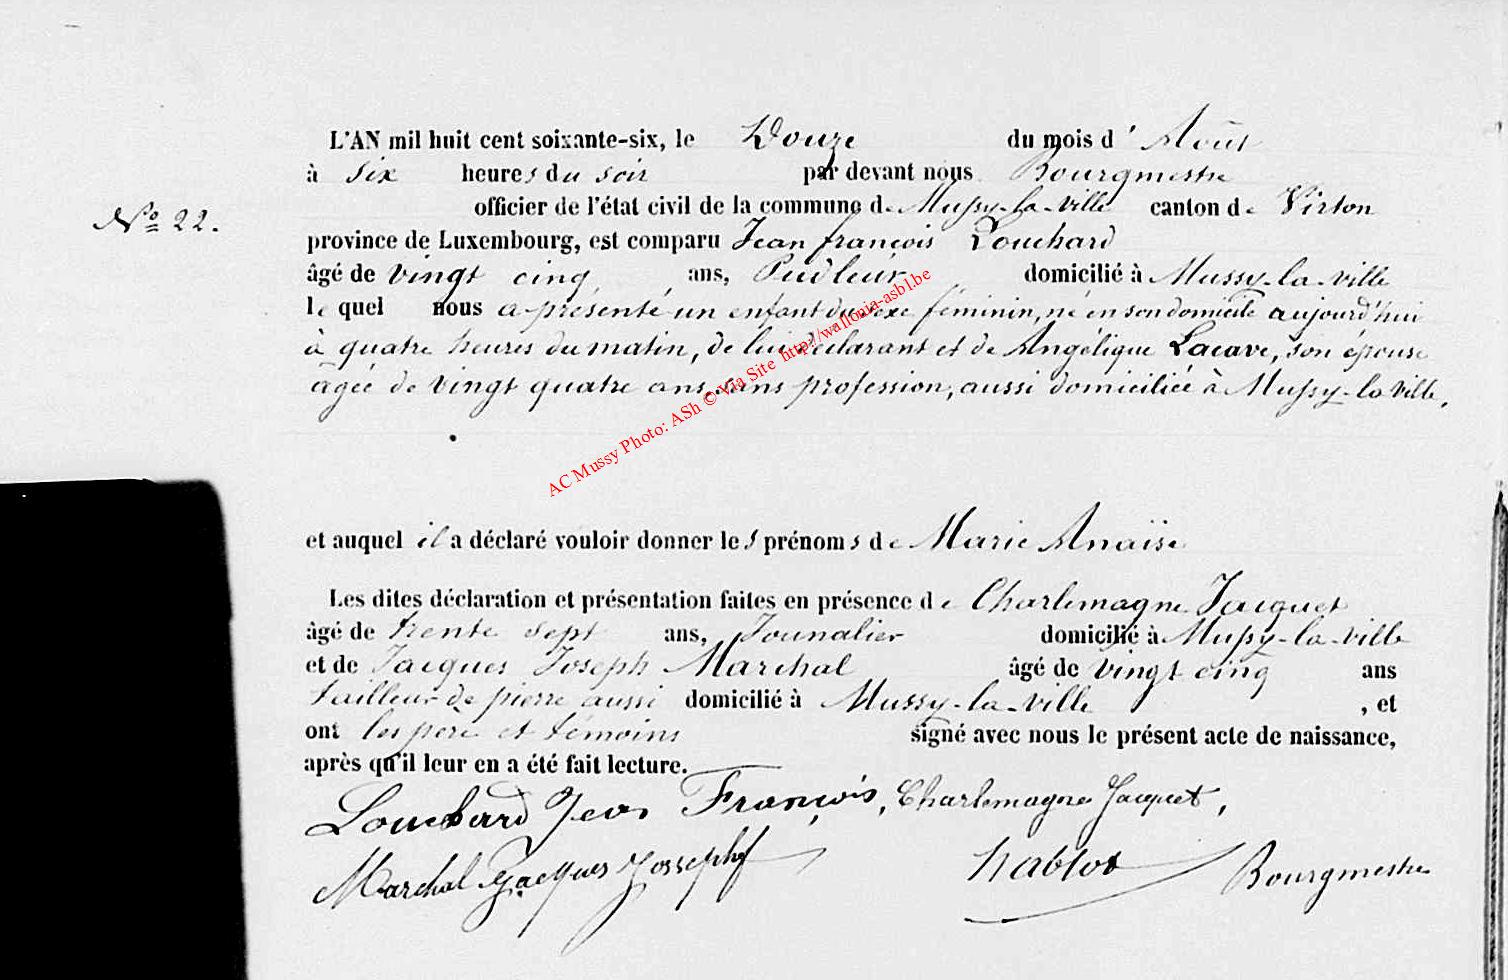 L'AN mil huit cent soixante-six, le Douze du mois d'Août
à six heures du soir par devant nous Bourgmestre
No 22.
officier de l'état civil de la commune de Mussy-la-Ville canton de Virton
province de Luxembourg, est comparu Jean françois Louchard
âgé de vingt cinq ans, Pudleur domicilié à Mussy-la-ville
lequel nous a présenté un enfant du sexe féminin, né en son domicile aujourd'hui
à quatre heures du matin, de lui déclarant et de Angélique Lacave, son épouse
agée de vingt quatre ans, sans profession, aussi domiciliée à Mussy-la Ville,
AC Mussy Photo: ASh © Via Site http://wallonia-asbl.be
et auquel il a déclaré vouloir donner les prénoms de Marie Anaïse
Les dites déclaration et présentation faites en présence de Charlemagne Jacquet
âgé de trente sept ans, Jounalier domicilié à Mussy-la-ville
et de Jacques Joseph Marchal âgé de vingt cinq ans
tailleur de pierre aussi domicilié à Mussy-la-ville, et
ont les pere et témoins signé avec nous le présent acte de naissance,
après qu'il leur en a été fait lecture.
Louchard Jean François, Charlemagne Jacquet,
Marchal Jacques Jossephf hablot Bourgmestre